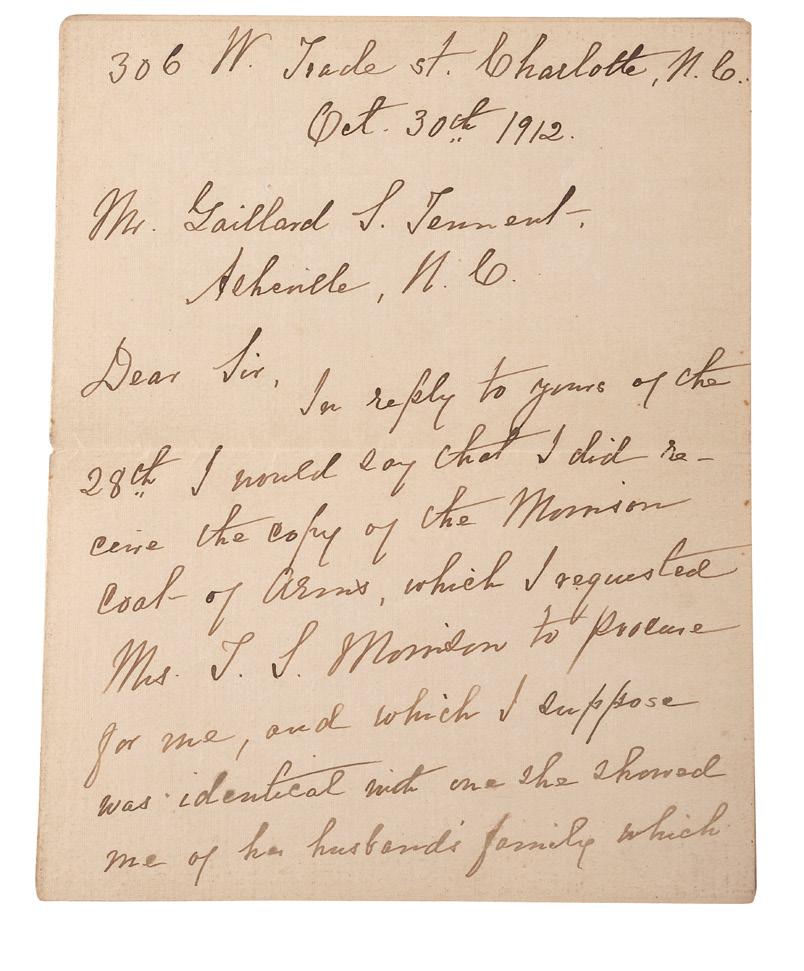 306 W. Trade st. Charlotte, N. C.
Oct. 30th 1912.
Mr. Gaillard S. Tennent,
Asheville, N. C.
Dear Sir,
In reply to yours of the
28th I would say that I did re-
ceive the copy of the Morrison
coat of Arms, which I requested
Mrs. T. S. Morrison to procure
for me, and which I suppose
was identical with one she showed
me of her husband's family which